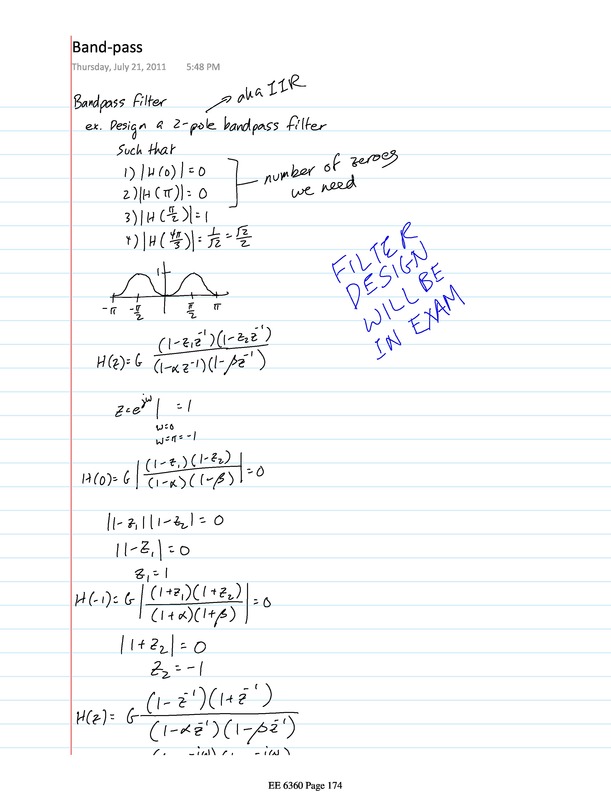 Band-pass
Thursday, July 21, 2011 5:48 PM
Bandpass Filter → aka IIR
ex. Design a 2-pole bandpass filter
Such that
1) |H(0)| = 0
2) |H(π)| = 0
number of zeroes we need
3) |H(π/2)| = 1
4) |H(4π/3)| = 1/√2 = √2/2
FILTER
DESIGN
WILL BE
IN EXAM
1
-π -π/2 π/2 π
H(z) = G (1-z₁z⁻¹)(1-z₂z⁻¹) / (1-αz⁻¹)(1-βz⁻¹)
z = e^jω | = 1
ω=0
ω=π=-1
H(0) = G |(1-z₁)(1-z₂) / (1-α)(1-β)| = 0
|1-z₁||1-z₂| = 0
|1-z₁| = 0
z₁ = 1
H(-1) = G |(1+z₁)(1+z₂) / (1+α)(1+β)| = 0
|1+z₂| = 0
z₂ = -1
H(z) = G (1-z⁻¹)(1+z⁻¹) / (1-αz⁻¹)(1-βz⁻¹)
EE 6360 Page 174